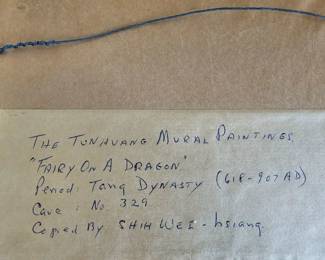 THE TUNHUANG MURAL PAINTINGS
"FAIRY ON A DRAGON"
Period: Tang DYNASTY (618-907 AD)
Cave: No. 329
Copied By SHIH WEI-hsiang.